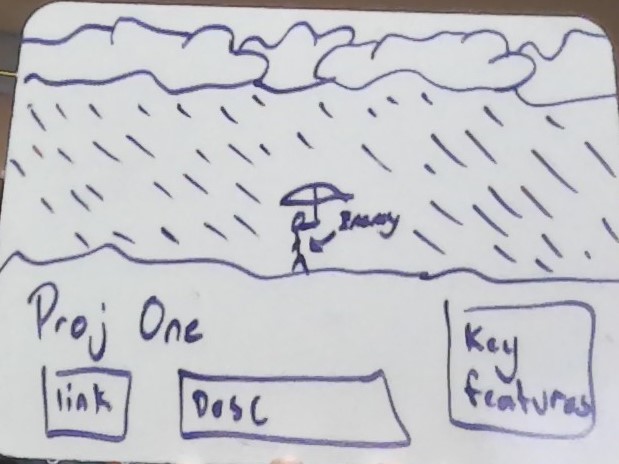 Proj One
link
Desc
Key
features